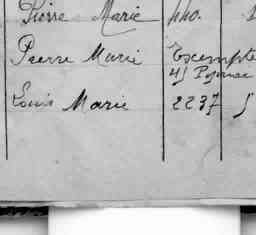 Pierre Marie 440.
Pierre Marie Exempté
45
Louis Marie 2237 5